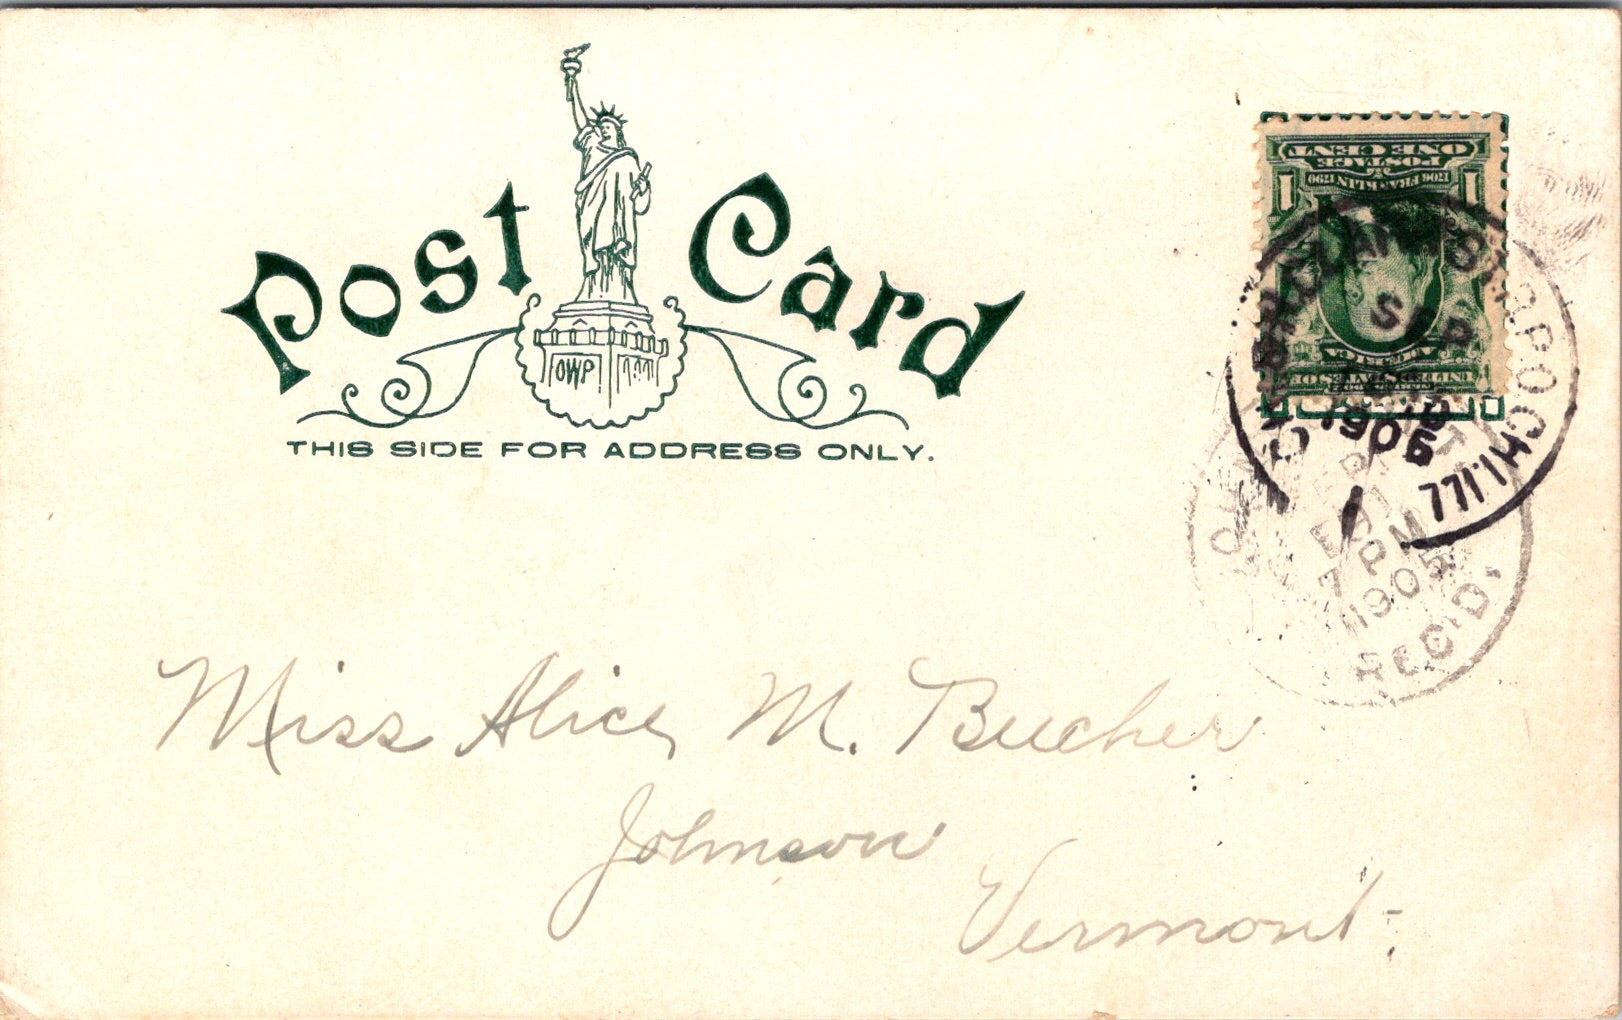 Post Card
OWP
THIS SIDE FOR ADDRESS ONLY.
ONE CENT
POSTAGE
1706 FRANKLIN 1790
1 1
AMERICA
R.P.O.
SEP
1905
7 PM
1905
REC'D.
Miss Alice M. Bucher
Johnson
Vermont.